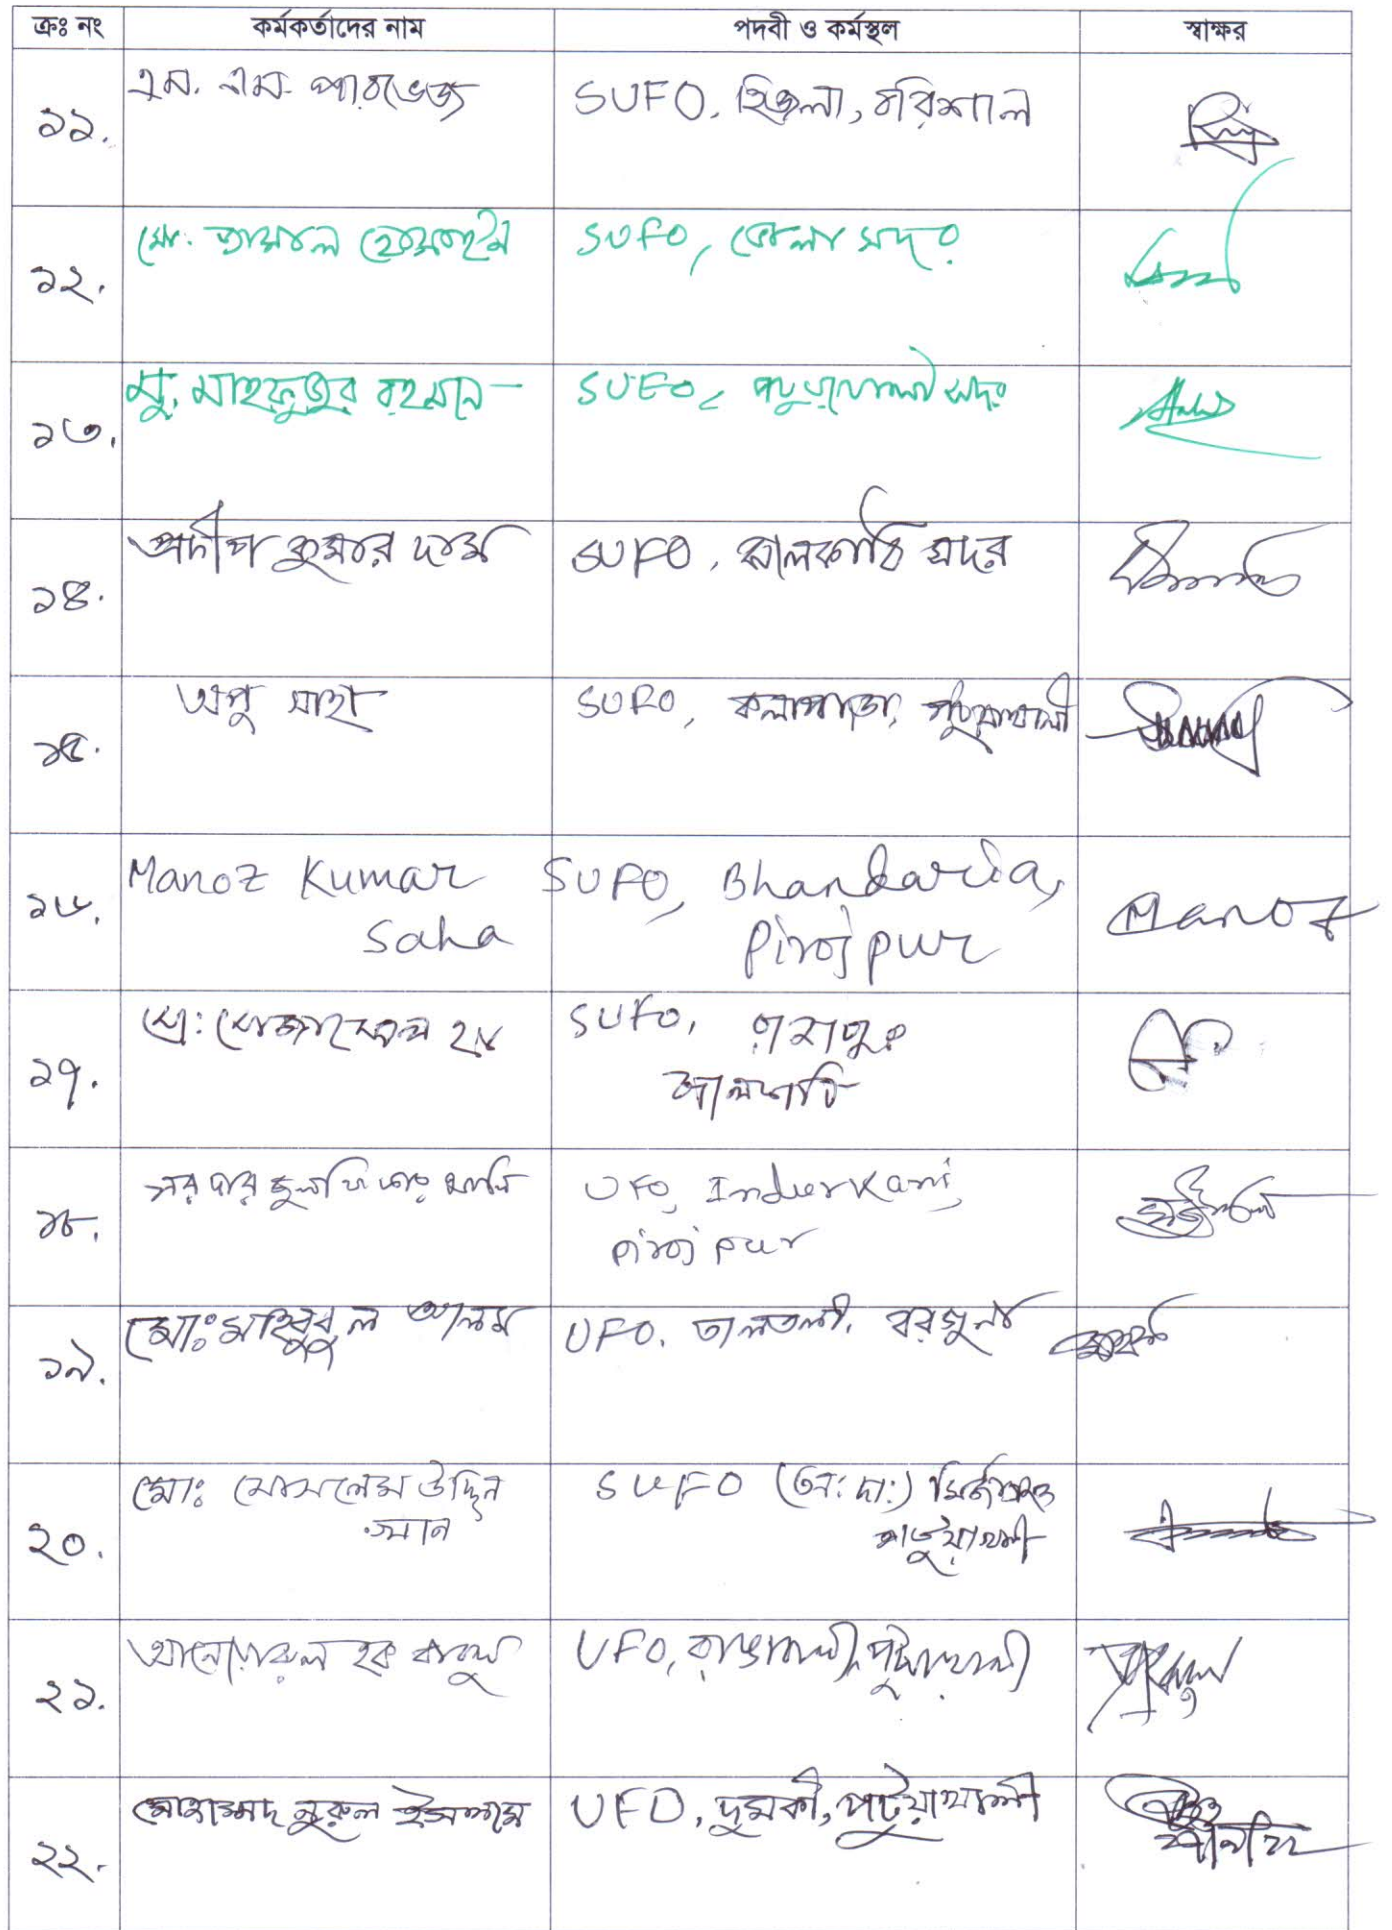 ক্রঃ নং কর্মকর্তাদের নাম পদবী ও কর্মস্থল স্বাক্ষর
১১. এম. এম. পারভেজ SUFO, হিজলা, বরিশাল
১২. মো. জামাল হোসাইন SUFO, ভোলা সদর
১৩. মু. মাহফুজুর রহমান SUFO, পটুয়াখালী সদর
১৪. প্রদীপ কুমার দাস SUFO, ঝালকাঠি সদর
১৫. অপু সাহা SUFO, কলাপাড়া, পটুয়াখালী
১৬. Manoz Kumar SUFO, Bhandaria, Manoz
Saha Pirojpur
১৭. মো: মোজাম্মেল হক SUFO, রাজাপুর
ঝালকাঠি
১৮. সরদার জুলফিকার আলি UFO, Indurkani,
Pirojpur
১৯. মোঃ মাহবুবুল আলম UFO, তালতলী, বরগুনা
২০. মোঃ মোসলেম উদ্দিন SUFO (অ: দা:) মির্জাগঞ্জ
খান পটুয়াখালী
২১. আনোয়ারুল হক বাবুল UFO, রাঙাবালী, পটুয়াখালী
২২. মোহাম্মদ নুরুল ইসলাম UFO, দুমকী, পটুয়াখালী